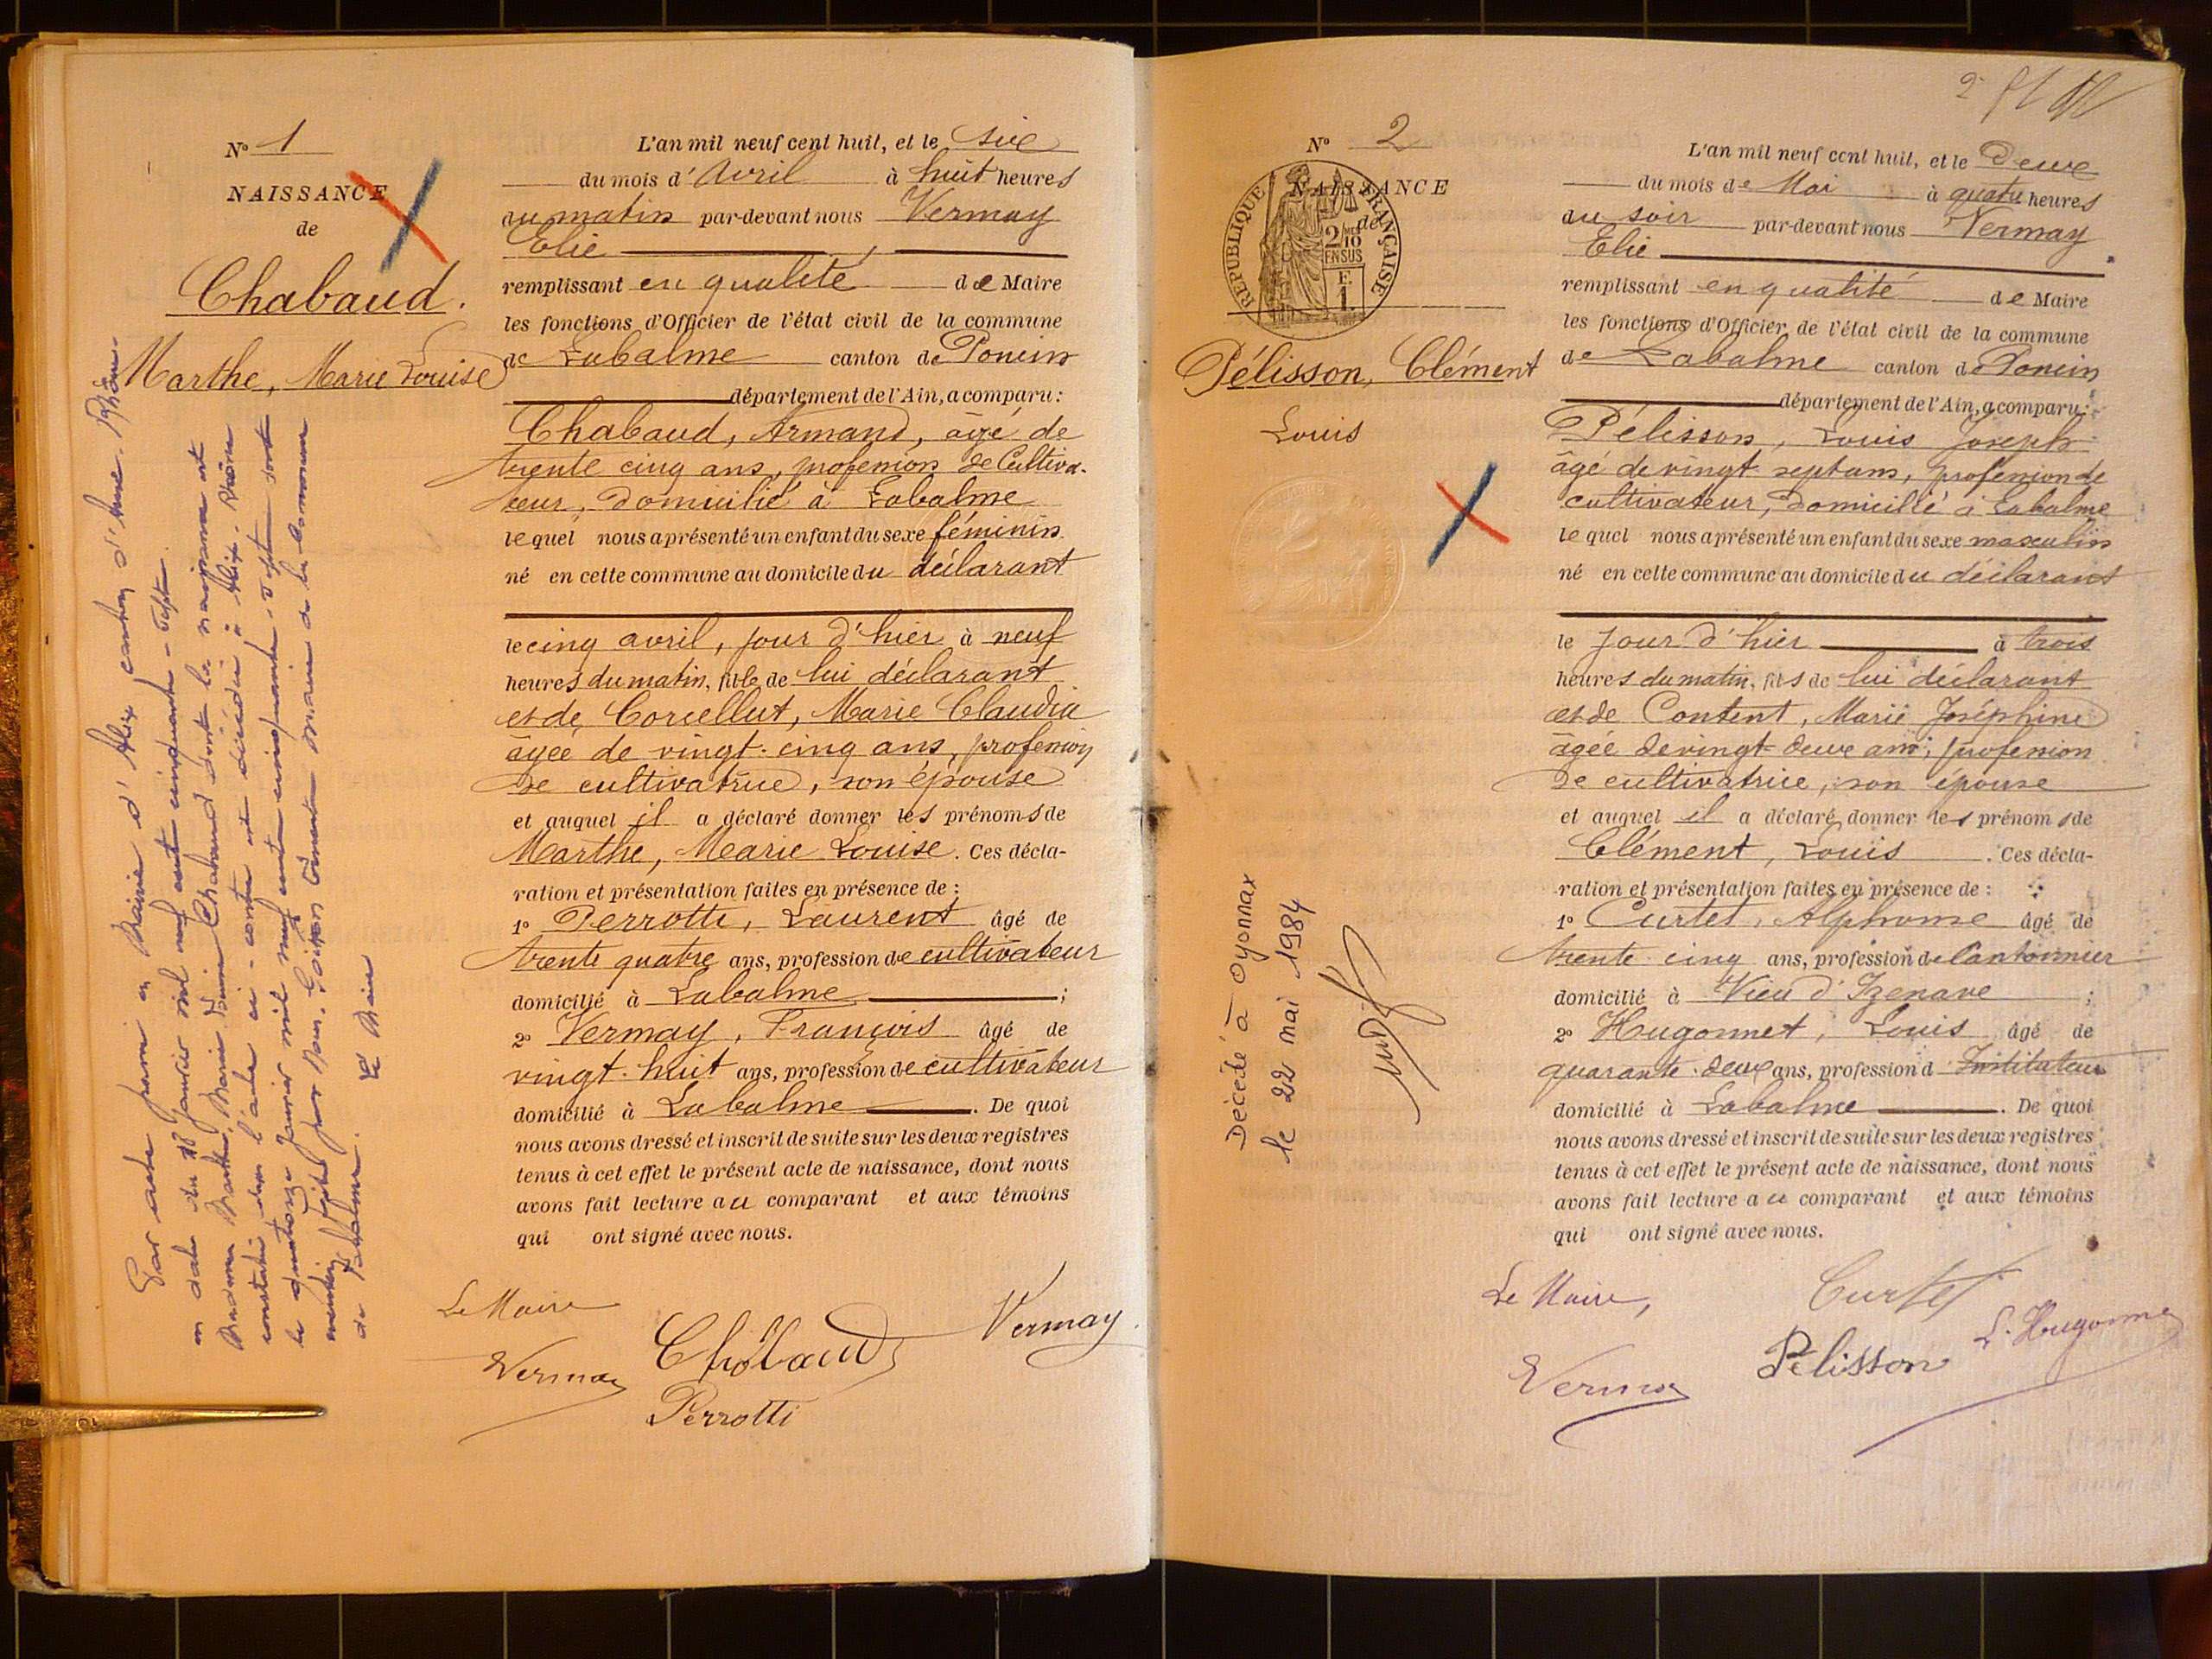 N° 1
NAISSANCE
de
Chabaud.
Marthe, Marie Louise
L'an mil neuf cent huit, et le six
du mois d'Avril à huit heures
du matin par-devant nous Vermay
Elie
remplissant en qualité de Maire
les fonctions d'Officier de l'état civil de la commune
de Labalme canton de Poncin
département de l'Ain, a comparu:
Chabaud, Armand, âgé de
trente cinq ans, profession de Cultiva-
teur, domicilié à Labalme
lequel nous a présenté un enfant du sexe féminin
né en cette commune au domicile du déclarant
le cinq avril, jour d'hier à neuf
heures du matin, fille de lui déclarant
et de Corcellut, Marie Claudia
âgée de vingt-cinq ans, profession
de cultivatrice, son épouse
et auquel il a déclaré donner les prénoms de
Marthe, Marie Louise. Ces décla-
ration et présentation faites en présence de:
1° Perrotti, Laurent âgé de
trente quatre ans, profession de cultivateur
domicilié à Labalme ;
2° Vermay, François âgé de
vingt-huit ans, profession de cultivateur
domicilié à Labalme. De quoi
nous avons dressé et inscrit de suite sur les deux registres
tenus à cet effet le présent acte de naissance, dont nous
avons fait lecture au comparant et aux témoins
qui ont signé avec nous.
Le Maire
Vermay
Chabaud
Vermay
Perrotti
Par acte en Mairie d'Alix canton d'Anse. Rhône.
en date du 18 janvier mil neuf cent cinquante
Madame Marthe, Marie Louise Chabaud dont la naissance est
constatée dans l'acte ci-contre est décédée à Alix-Rhône
le quatorze janvier mil neuf cent cinquante
mention faite par Nous, Maire de la commune
de Labalme. Le Maire
2
N° 2
NAISSANCE
de
RÉPUBLIQUE FRANÇAISE
2/10
EN SUS
E
1
Pélisson, Clément
Louis
L'an mil neuf cent huit, et le Deux
du mois de Mai à quatre heures
du soir par-devant nous Vermay
Elie
remplissant en qualité de Maire
les fonctions d'Officier de l'état civil de la commune
de Labalme canton de Poncin
département de l'Ain, a comparu:
Pélisson, Louis Joseph
âgé de vingt sept ans, profession de
cultivateur, domicilié à Labalme
lequel nous a présenté un enfant du sexe masculin
né en cette commune au domicile du déclarant
le jour d'hier à trois
heures du matin, fils de lui déclarant
et de Content, Marie Joséphine
âgée de vingt-deux ans, profession
de cultivatrice, son épouse
et auquel il a déclaré donner les prénoms de
Clément, Louis. Ces décla-
ration et présentation faites en présence de:
1° Curtet, Alphonse âgé de
trente-cinq ans, profession de Cantonnier
domicilié à Vieu d'Izenave ;
2° Hugonnet, Louis âgé de
quarante-deux ans, profession d'Instituteur
domicilié à Labalme. De quoi
nous avons dressé et inscrit de suite sur les deux registres
tenus à cet effet le présent acte de naissance, dont nous
avons fait lecture au comparant et aux témoins
qui ont signé avec nous.
Le Maire,
Vermay
Curtet
Pélisson
L. Hugonnet
Décédé à Oyonnax
le 22 mai 1984